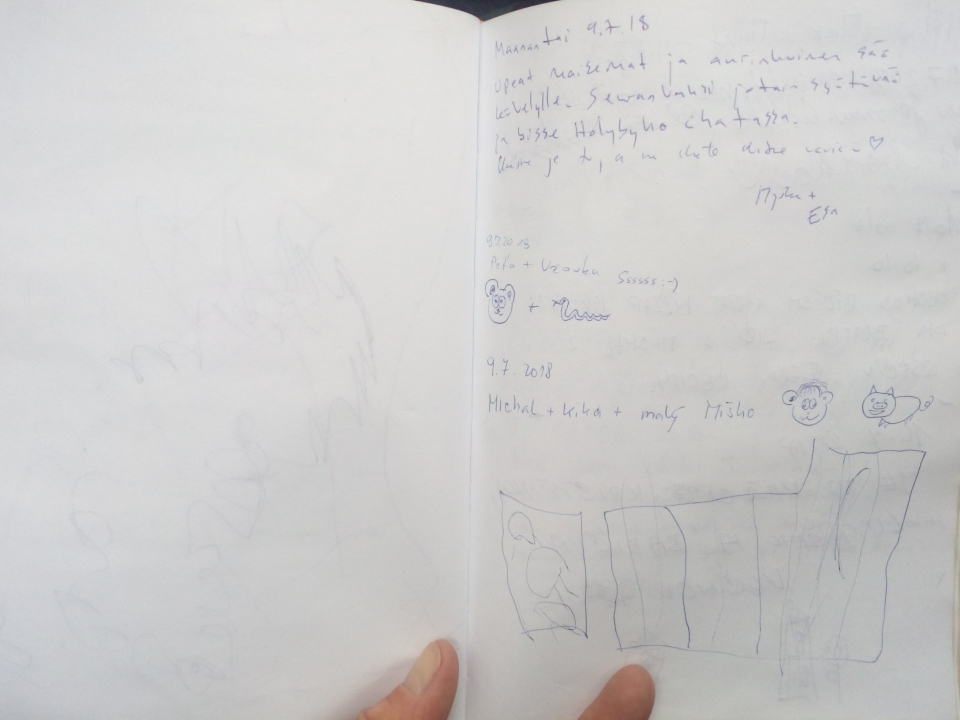 Maanantai 9.7.18
Upeat maisemat ja aurinkoinen sää
kävelylle. Seuraavaksi jotain syötävää
ja bisse Holubyho chatassa.
je to, a
+
Esa
9.7.2018
Peťo + Uzovka Ssssss :-)
+
9.7.2018
Michal + Kika + malý Miško